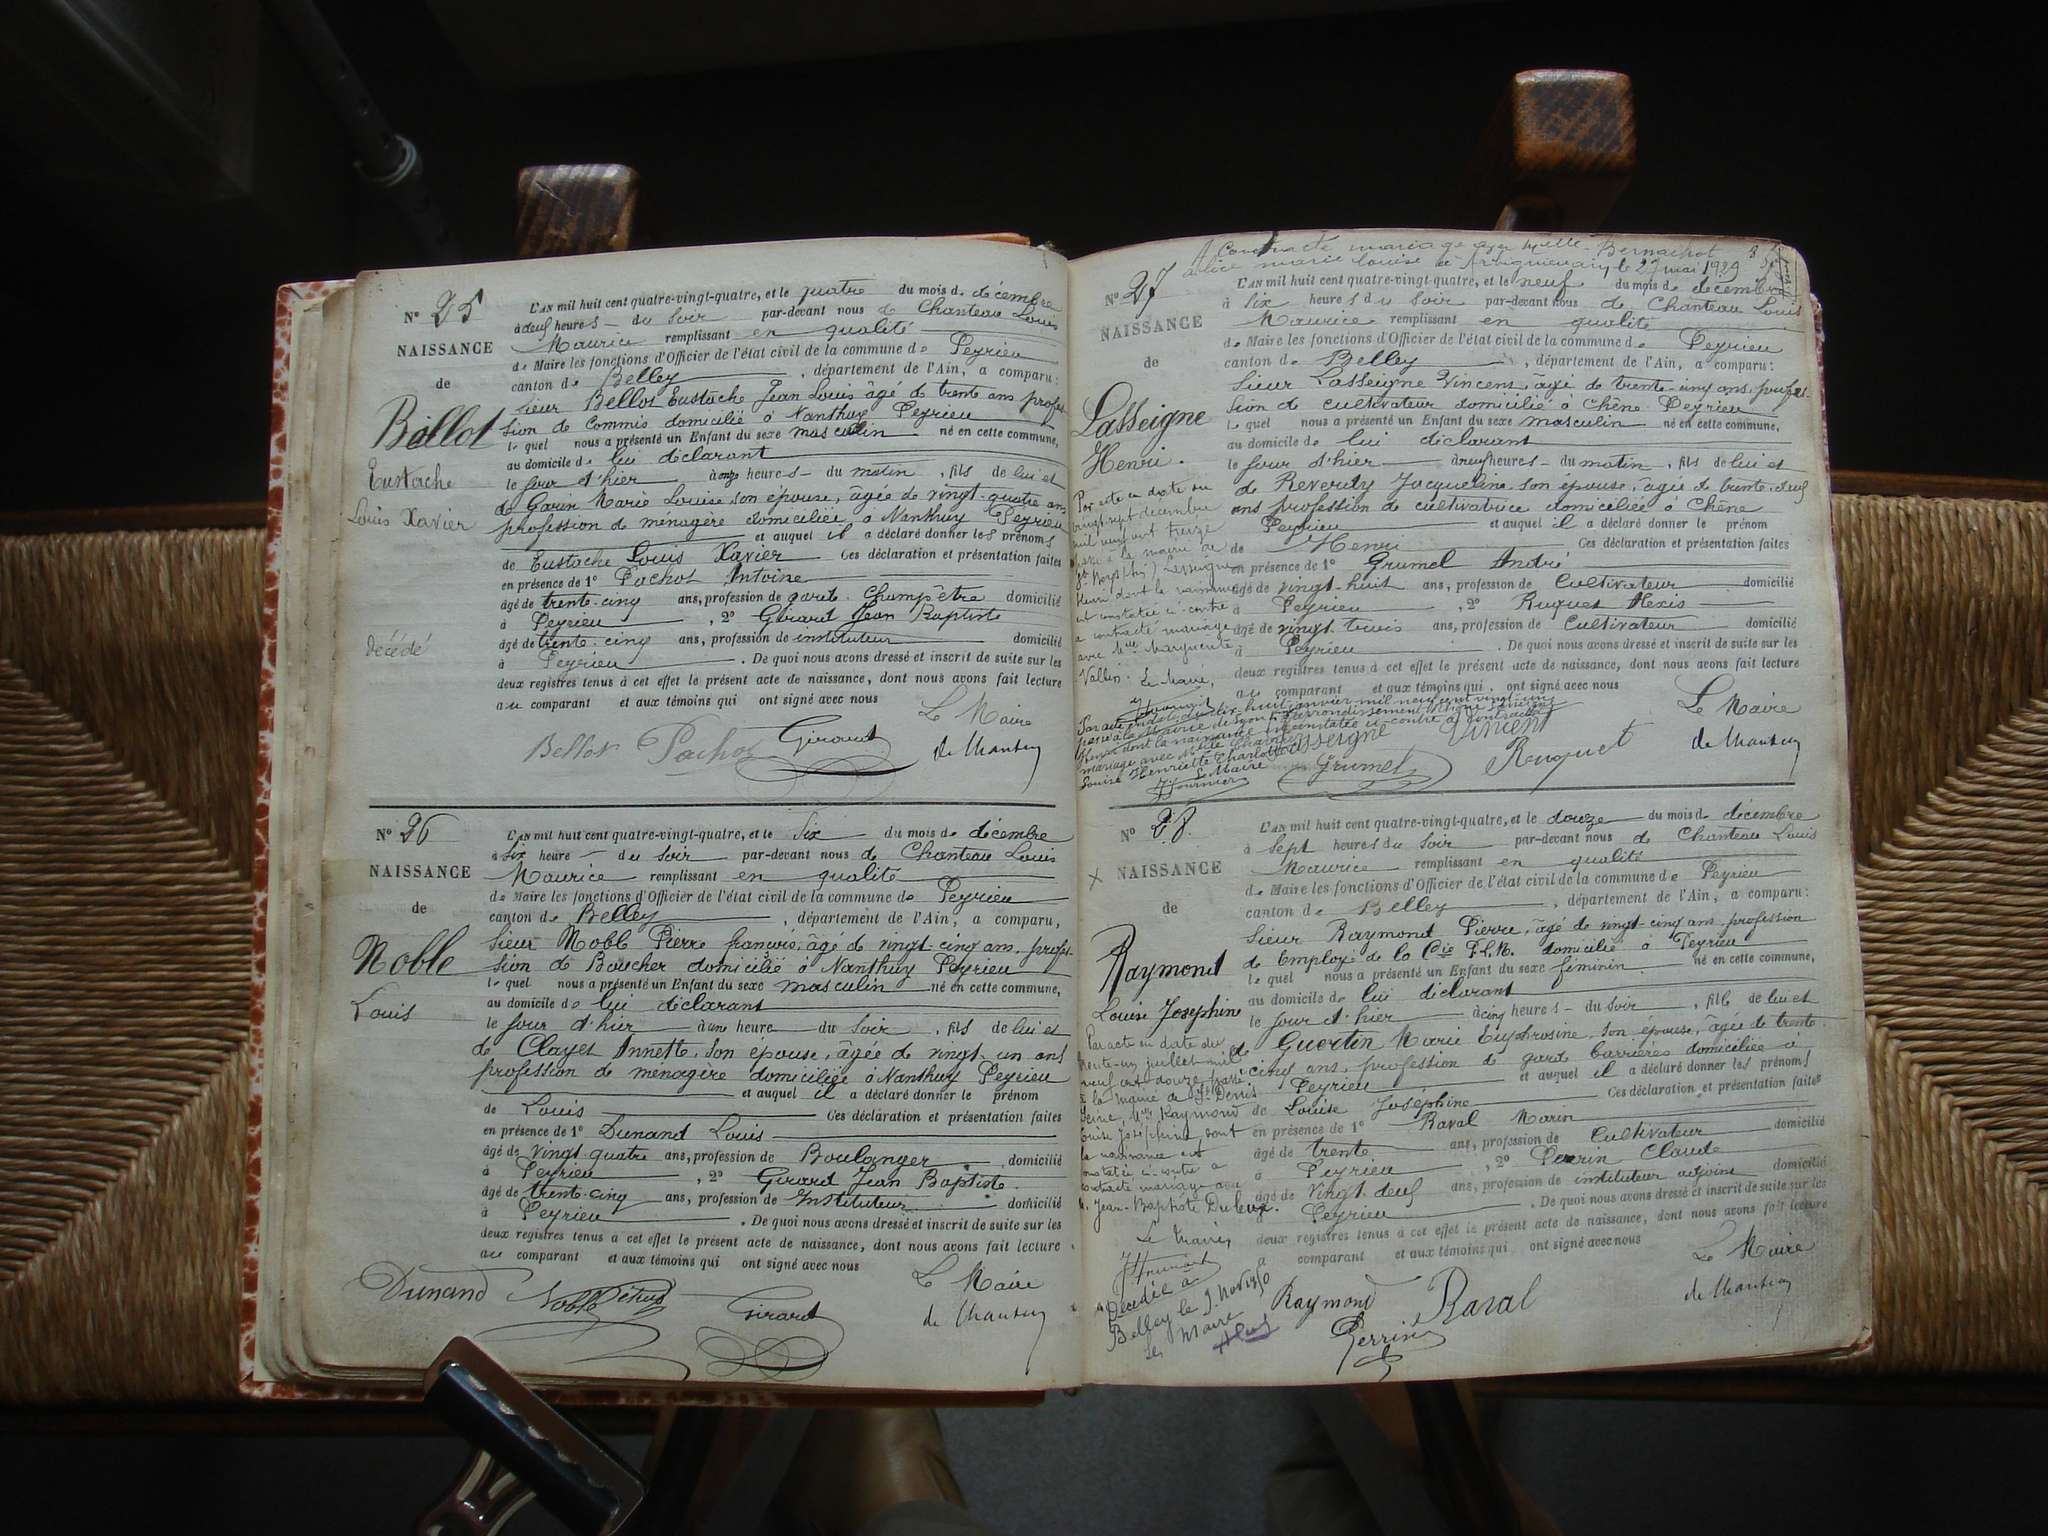 N° 25
NAISSANCE
de
Bellot
Eustache
Louis Xavier
décédé
L'AN mil huit cent quatre-vingt-quatre, et le quatre du mois de décembre
à deuf heures du soir par-devant nous de Chanteau Louis
Maurice remplissant en qualité
de Maire les fonctions d'Officier de l'état civil de la commune de Peyrieu
canton de Belley, département de l'Ain, a comparu:
Sieur Bellot Eustache Jean Louis âgé de trente ans profes-
sion de Commis domicilié à Nanthuy Peyrieu
le quel nous a présenté un Enfant du sexe masculin né en cette commune,
au domicile de lui déclarant
le jour d'hier à onze heures du matin, fils de lui et
de Garin Marie Louise son épouse, âgée de vingt-quatre ans
profession de ménagère domiciliée à Nanthuy Peyrieu
et auquel il a déclaré donner les prénoms
de Eustache Louis Xavier Ces déclaration et présentation faites
en présence de 1° Pochot Antoine
âgé de trente-cinq ans, profession de garde-Champêtre domicilié
à Peyrieu, 2° Girard Jean Baptiste
âgé de trente-cinq ans, profession de instituteur domicilié
à Peyrieu. De quoi nous avons dressé et inscrit de suite sur les
deux registres tenus à cet effet le présent acte de naissance, dont nous avons fait lecture
au comparant et aux témoins qui ont signé avec nous
Le Maire
Bellot Pochot Girard
N° 26
NAISSANCE
de
Noble
Louis
L'AN mil huit cent quatre-vingt-quatre, et le six du mois de décembre
à six heure du soir par-devant nous de Chanteau Louis
Maurice remplissant en qualité
de Maire les fonctions d'Officier de l'état civil de la commune de Peyrieu
canton de Belley, département de l'Ain, a comparu,
Sieur Noble Pierre françois, âgé de vingt-cinq ans, profes-
sion de Boucher domicilié à Nanthuy Peyrieu
le quel nous a présenté un Enfant du sexe masculin né en cette commune,
au domicile de lui déclarant
le jour d'hier à une heure du soir, fils de lui et
de Clayet Annette, son épouse, âgée de vingt-un ans
profession de menagère domiciliée à Nanthuy Peyrieu
et auquel il a déclaré donner le prénom
de Louis Ces déclaration et présentation faites
en présence de 1° Dunand Louis
âgé de vingt quatre ans, profession de Boulanger domicilié
à Peyrieu, 2° Girard Jean Baptiste
âgé de trente-cinq ans, profession de Instituteur domicilié
à Peyrieu. De quoi nous avons dressé et inscrit de suite sur les
deux registres tenus à cet effet le présent acte de naissance, dont nous avons fait lecture
au comparant et aux témoins qui ont signé avec nous
Le Maire
Dunand Noble Girard
A Contracté mariage avec Melle Bernachot
alice marie louise à le 27 mai 1939
N° 27
NAISSANCE
de
Lasseigne
Henri.
Par acte en date du
vingt sept décembre
mil neuf cent treize
passé à la mairie de
Lasseigne
Henri dont la naissance
est constatée ci-contre
a contracté mariage
avec Mlle Marguerite
Vallin. Le Maire,
L'AN mil huit cent quatre-vingt-quatre, et le neuf du mois de décembre
à six heures du soir par-devant nous de Chanteau Louis
Maurice remplissant en qualité
de Maire les fonctions d'Officier de l'état civil de la commune de Peyrieu
canton de Belley, département de l'Ain, a comparu:
Sieur Lasseigne Vincent, âgé de trente-cinq ans, profes-
sion de cultivateur domicilié à Chêne Peyrieu
le quel nous a présenté un Enfant du sexe masculin né en cette commune,
au domicile de lui déclarant
le jour d'hier à neuf heures du matin, fils de lui et
de Reverdy Jacqueline son épouse, âgée de trente-deuf
ans profession de cultivatrice domiciliée à Chêne
Peyrieu et auquel il a déclaré donner le prénom
de Henri Ces déclaration et présentation faites
en présence de 1° Grumel André
âgé de vingt-huit ans, profession de Cultivateur domicilié
à Peyrieu, 2° Ruquet Alexis
âgé de vingt-trois ans, profession de Cultivateur domicilié
à Peyrieu. De quoi nous avons dressé et inscrit de suite sur les
deux registres tenus à cet effet le présent acte de naissance, dont nous avons fait lecture
au comparant et aux témoins qui ont signé avec nous
Le Maire
Par acte en date du dix-huit janvier mil neuf cent vingt-un
passé à la mairie de Lyon arrondissement,
dont la naissance est constatée ci-contre a contracté
mariage avec
Louise Henriette Charlotte
Le Maire
Lasseigne Vincent
Grumel Ruquet
N° 28.
X NAISSANCE
de
Raymond
Louise Joséphine
Par acte en date du
trente-un juillet mil
neuf cent douze passé
à la mairie de St Denis
Seine, Mlle Raymond
Louise Joséphine dont
la naissance est
constatée ci-contre a
contracté mariage avec
M. Jean-Baptiste
Le Maire,
Décédée à
Belley le 9. Nov 1950
Le Maire
L'AN mil huit cent quatre-vingt-quatre, et le douze du mois de décembre
à sept heures du soir par-devant nous de Chanteau Louis
Maurice remplissant en qualité
de Maire les fonctions d'Officier de l'état civil de la commune de Peyrieu
canton de Belley, département de l'Ain, a comparu:
Sieur Raymond Pierre, âgé de vingt-cinq ans profession
de Employé de la Cie P.L.M. domicilié à Peyrieu
le quel nous a présenté un Enfant du sexe féminin né en cette commune,
au domicile de lui déclarant
le jour d'hier à cinq heures du soir, fille de lui et
de Guertin Marie Euphrosine son épouse, âgée de trente-
cinq ans, profession de garde barrières domiciliée à
Peyrieu et auquel il a déclaré donner les prénoms
de Louise Joséphine Ces déclaration et présentation faites
en présence de 1° Raval Marin
âgé de trente ans, profession de Cultivateur domicilié
à Peyrieu, 2° Perrin Claude
âgé de vingt-deuf ans, profession de instituteur adjoint domicilié
à Peyrieu. De quoi nous avons dressé et inscrit de suite sur les
deux registres tenus à cet effet le présent acte de naissance, dont nous avons fait lecture
a comparant et aux témoins qui ont signé avec nous
Le Maire
Raymond Raval
Perrin